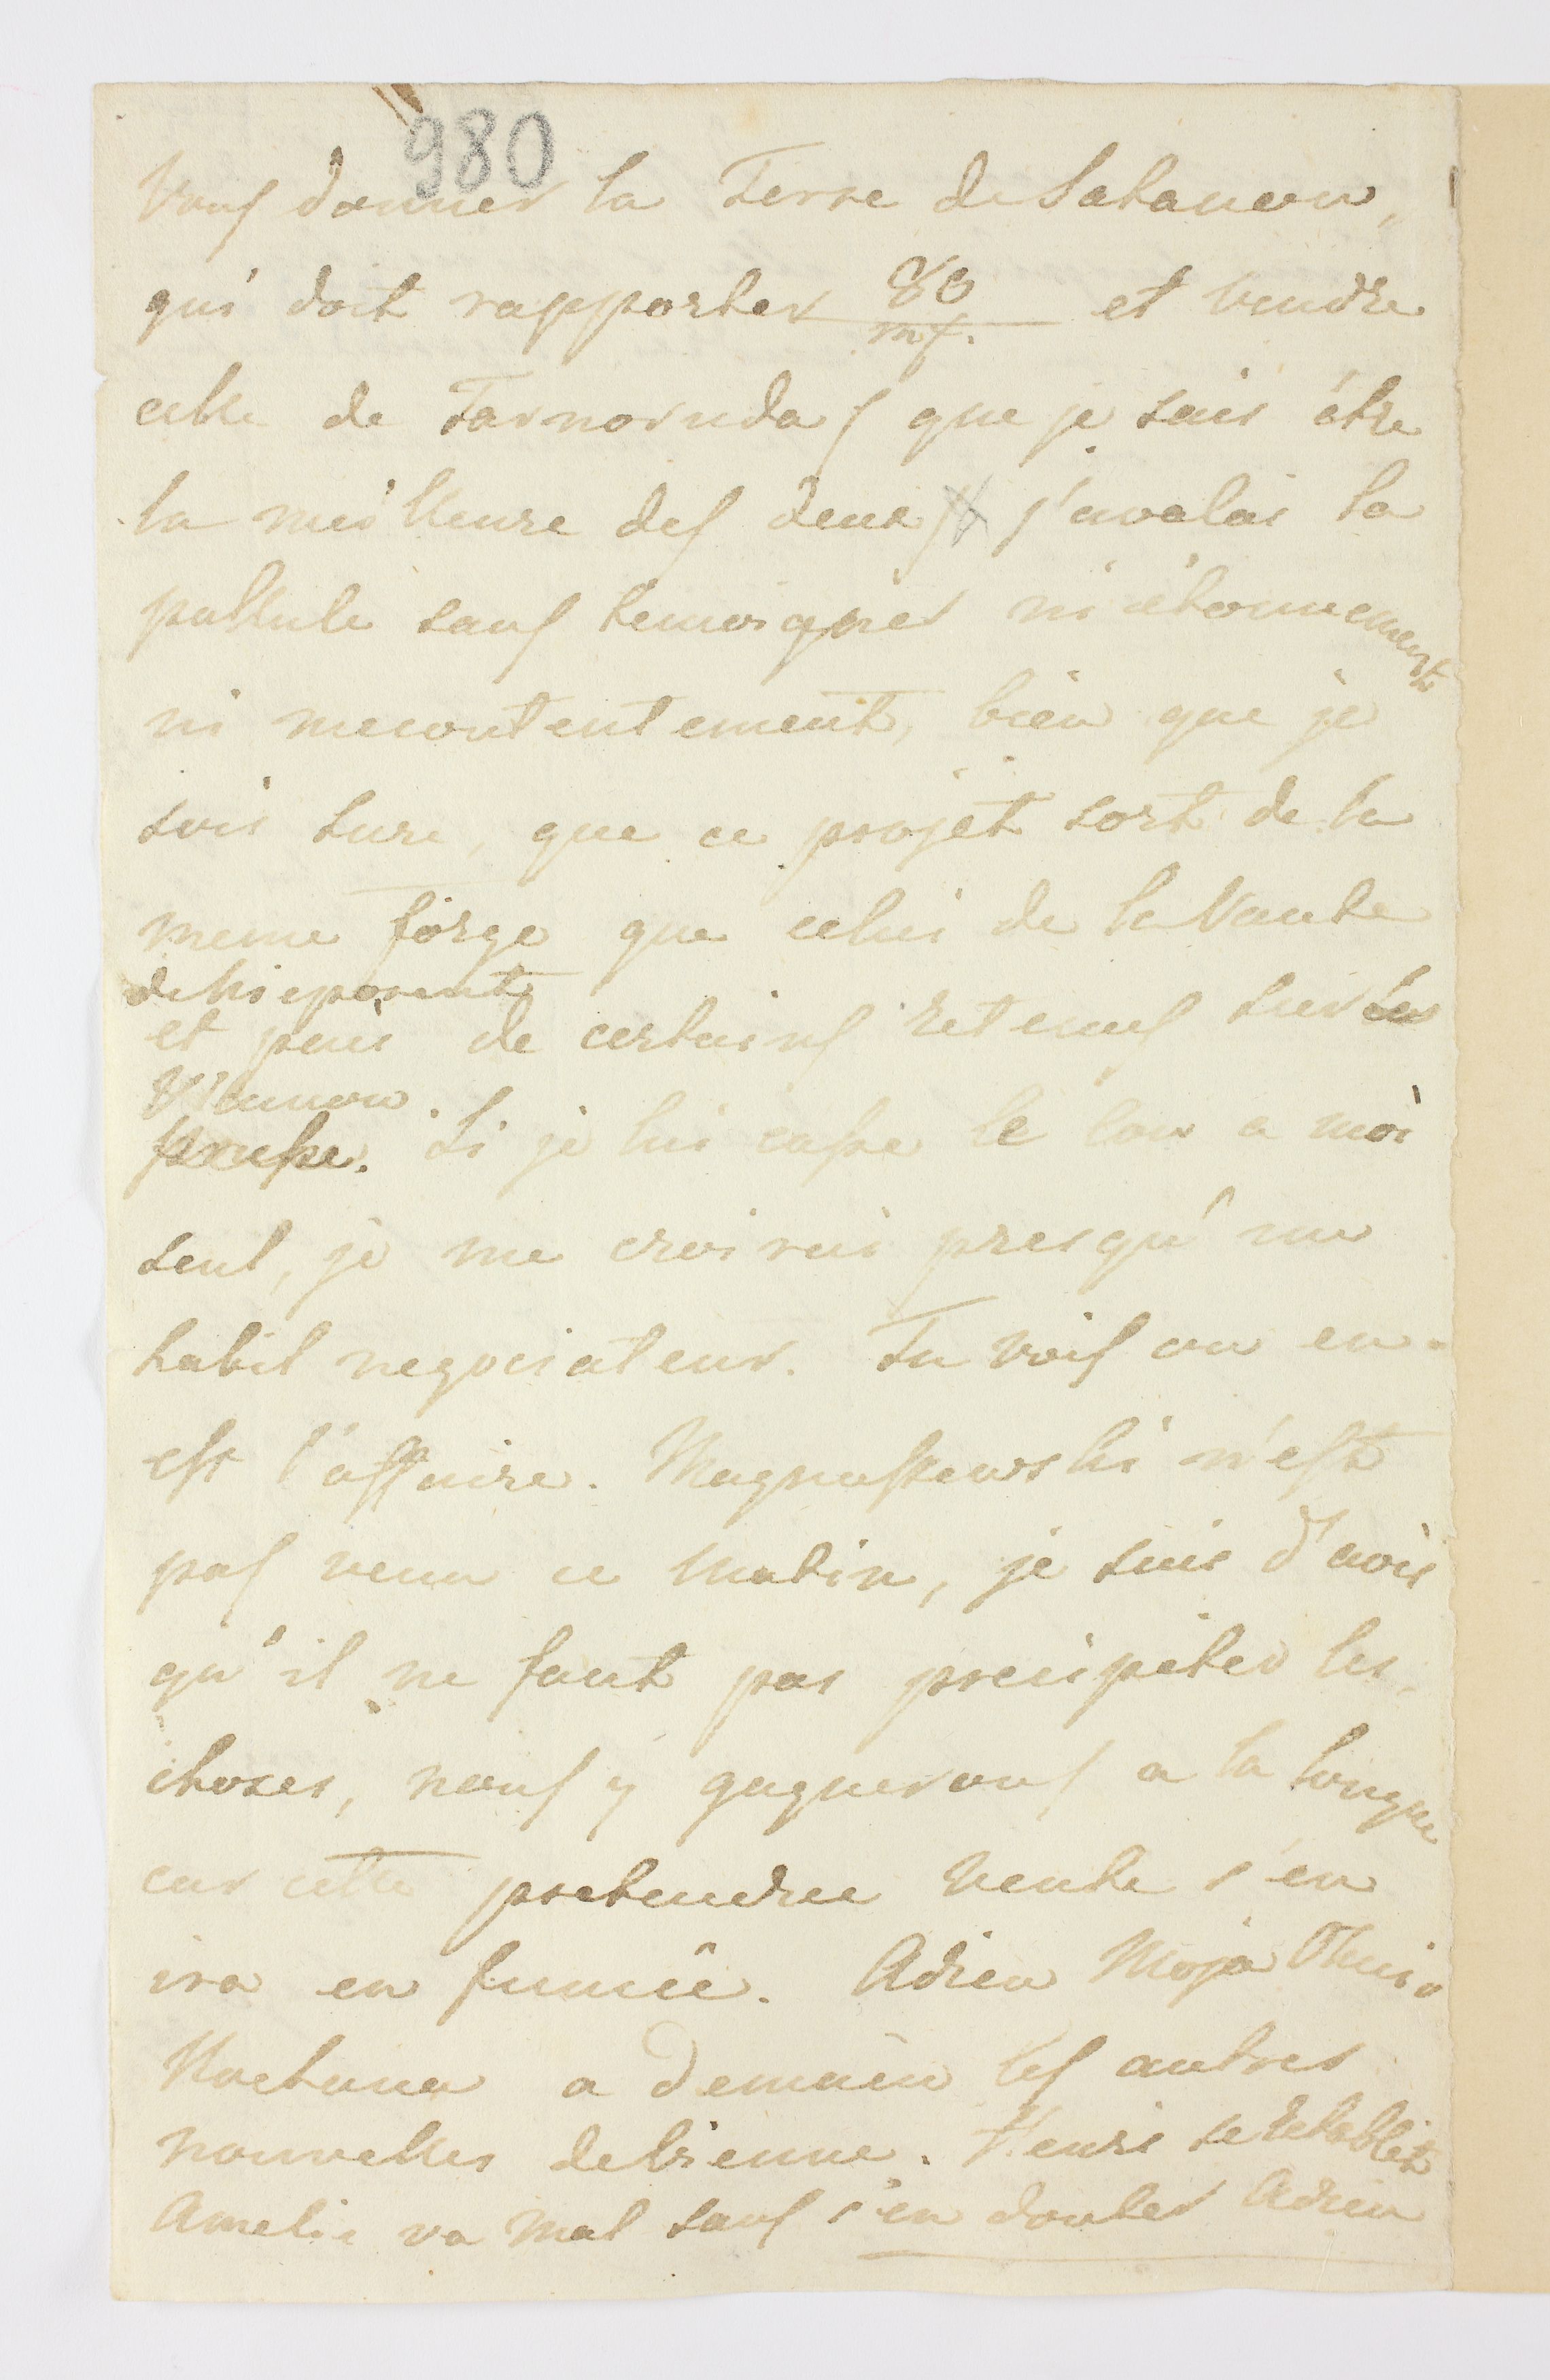 980
Vous donner la Terre de Satanow,
qui doit rapporter 80/mf. et vendre
celle de Tarnoruda ( que je sais être
la meilleure des deux ) j'avalai la
pullule sans temoigner ni étonnement
ni mecontentement, bien que je
sois sure, que ce projet sort de la
meme forge que celui de la Vante
de Nieporent
et puis de certains retenus sur les
Wianow.
prusse. Si je lui casse le cou a moi
seul, je me croirai presqu'un
habil negociateur. Tu vois ou en
est l'affaire. Magnuszewski n'est
pas venu ce matin, je suis d'avis
qu'il ne faut pas precipiter les
choses, nous y gagnerons a la longue
car cette pretendue vente s'en
ira en fumée. Adieu Moja
Kochana a demain les autres
nouvelles de Vienne. Henri se retablit
Amelie va mal sans s'en douter Adieu